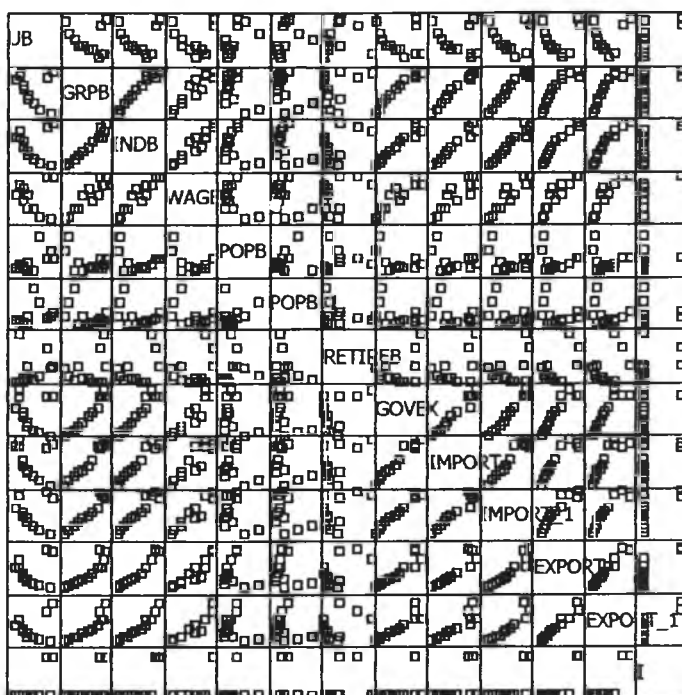 UB
GRPB
INDB
WAGE
POPB
POPB
RETIREB
GOVEX
IMPORT
IMPORT_1
EXPORT
EXPORT_1